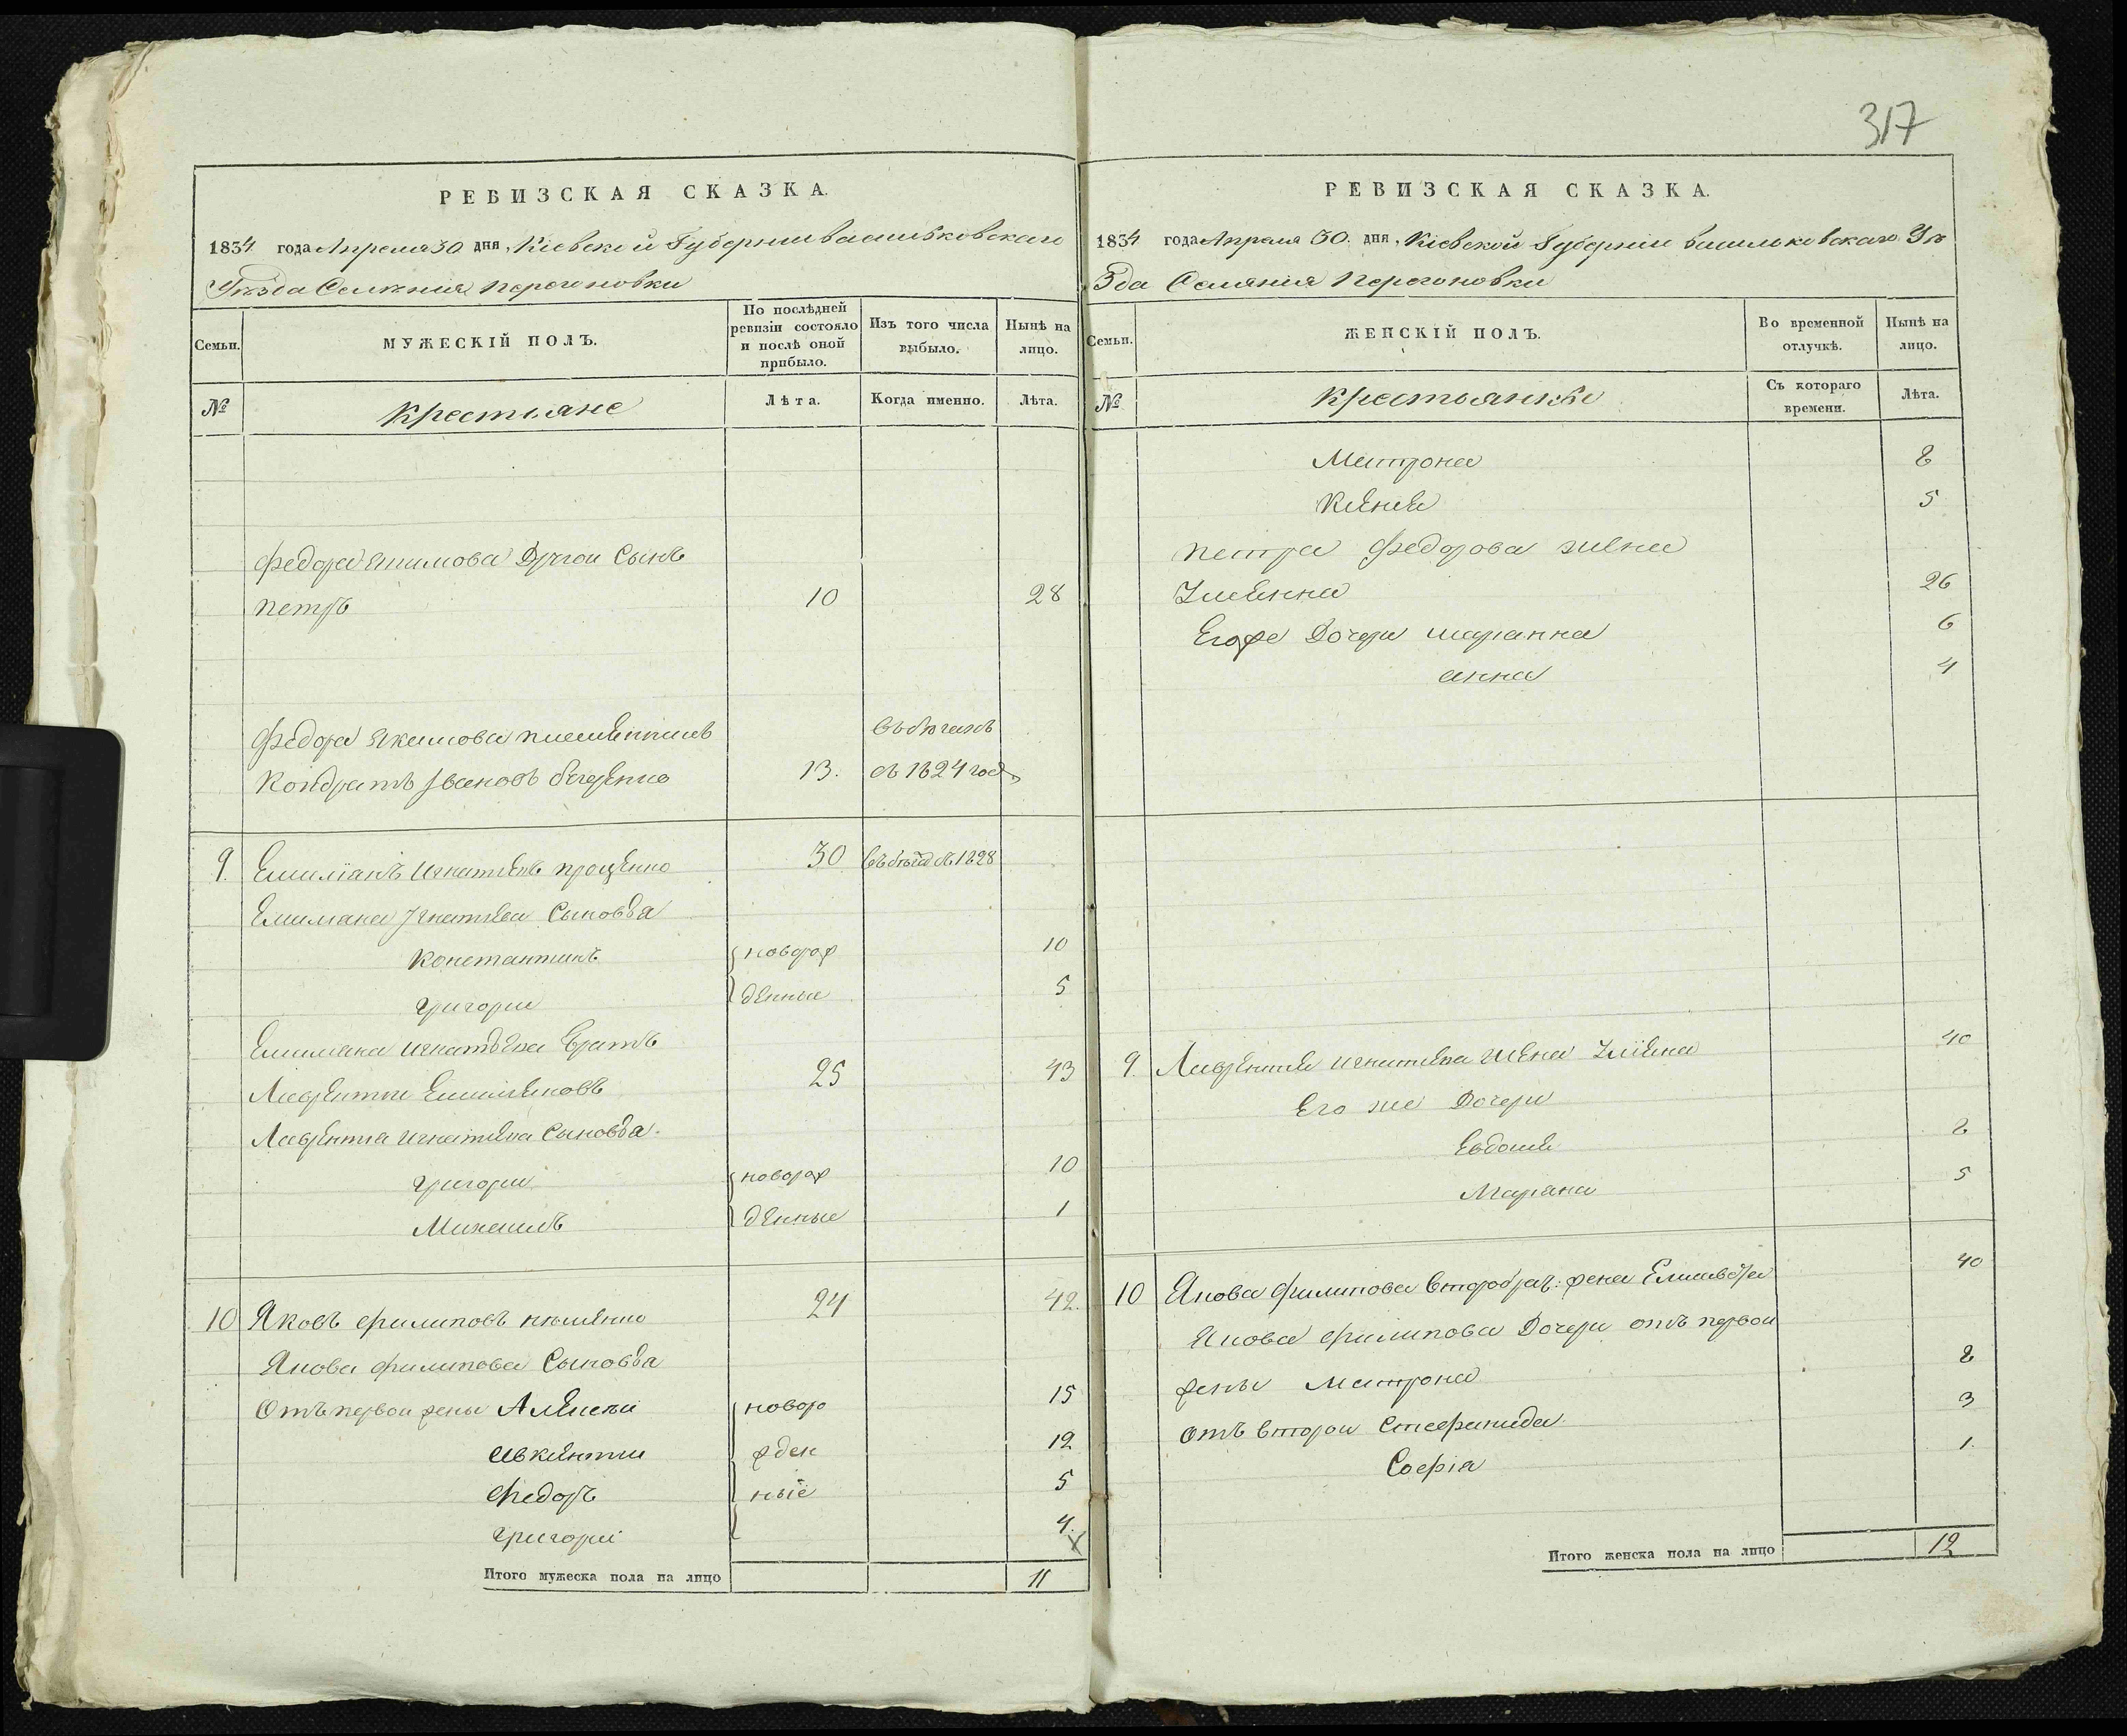 317
РЕВИЗСКАЯ СКАЗКА.
1834 года Апреля 30 дня, Кіевской Губерніи васильковскаго
Уѣзда Селенія Перегоновки
Семьи.
МУЖЕСКІЙ ПОЛЪ.
По послѣдней ревизіи состояло и послѣ оной прибыло.
Изъ того числа выбыло.
Нынѣ на лицо.
№
Крестьяне
Лѣта.
Когда именно.
Лѣта.
Федора Якимова Другой Сынъ
Петръ 10 28
Федора Якимова племенникъ въ бѣгахъ
Кондратъ Івановъ 13. съ 1824 года
9. Емиліанъ Игнатіевъ проценко 30 съ 1828
Емилиана Игнатіева Сыновья
Константинъ новорож 10
григори денные 5
Емилиана Игнатьева братъ
Лаврентии Емилиановъ 25 43
Лаврентиа Игнатиева Сыновья
григори новорож 10
Михаилъ денные 1
10 Яковъ филиповъ 24 42.
Якова филипова Сыновья
Отъ первои жены Алексѣи новоро 15
Авксентии жден 12
Федоръ ные 5
григорій 4.
Итого мужеска пола на лицо 11
РЕВИЗСКАЯ СКАЗКА.
1834 года Апреля 30. дня, Кіевской Губерніи васильковскаго Уѣ
зда Селянія Перегоновки
Семьи.
ЖЕНСКІЙ ПОЛЪ.
Во временной отлучкѣ.
Нынѣ на лицо.
№
Крестьянки
Съ котораго времени.
Лѣта.
Матрона 8
Ксенія 5
Петра Федорова жена
Улиянна 26
Егоже Дочери марианна 6
анна 4
9. Лаврентия Игнатиева жена Улиена 40
Его же Дочери
Евдокия 8
Мариана 5
10 Якова филипова второбрач: жена Елисавета 40
Якова филипова Дочери отъ первои
жены Матрона 8
отъ второи Стефанида 3
Софія 1
Итого женска пола на лицо 12